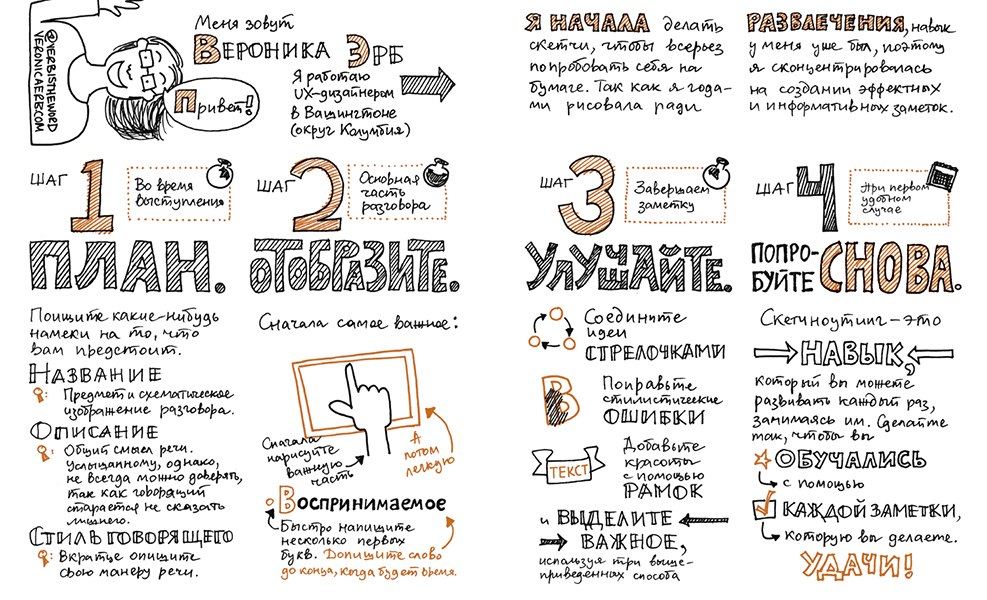 @VERBISTHEWORD
VERONICAERB.COM
Привет!
Меня зовут
Вероника Эрб
Я работаю
UX-дизайнером
в Вашингтоне
(округ Колумбия)
Я НАЧАЛА делать
скетчи, чтобы всерьез
попробовать себя на
бумаге. Так как я года-
ми рисовала ради
РАЗВЛЕЧЕНИЯ, навык
у меня уже был, поэтому
я сконцентрировалась
на создании эффектных
и информативных заметок.
ШАГ 1
Во время
выступления
ПЛАН.
Поищите какие-нибудь
намеки на то, что
вам предстоит.
НАЗВАНИЕ
: Предмет и схематическое
изображение разговора.
ОПИСАНИЕ
: Общий смысл речи.
Услышанному, однако,
не всегда можно доверять,
так как говорящий
старается не сказать
лишнего.
СТИЛЬ ГОВОРЯЩЕГО
: Вкратце опишите
свою манеру речи.
ШАГ 2
Основная
часть
разговора
ОТОБРАЗИТЕ.
Сначала самое важное:
Сначала
нарисуйте
важную
часть
А
потом
легкую
Воспринимаемое
Быстро напишите
несколько первых
букв. Допишите слово
до конца, когда будет время.
ШАГ 3
Завершаем
заметку
УЛУЧШАЙТЕ.
Соедините
идеи
СТРЕЛОЧКАМИ
В
Поправьте
стилистические
ОШИБКИ
ТЕКСТ
Добавьте
красоты
с помощью
РАМОК
и ВЫДЕЛИТЕ
ВАЖНОЕ,
используя три выше-
приведенных способа
ШАГ 4
При первом
удобном
случае
ПОПРО-
БУЙТЕ СНОВА.
Скетчноутинг – это
НАВЫК,
который вы можете
развивать каждый раз,
занимаясь им. Сделайте
так, чтобы вы
ОБУЧАЛИСЬ
с помощью
КАЖДОЙ ЗАМЕТКИ,
которую вы делаете.
УДАЧИ!